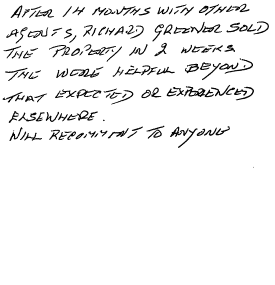 AFTER 14 MONTHS WITH OTHER
AGENTS, RICHARD GREENER SOLD
THE PROPERTY IN 2 WEEKS
THE WERE HELPFUL BEYOND
THAT EXPECTED OR EXPERIENCED
ELSEWHERE.
WILL RECOMMENT TO ANYONE